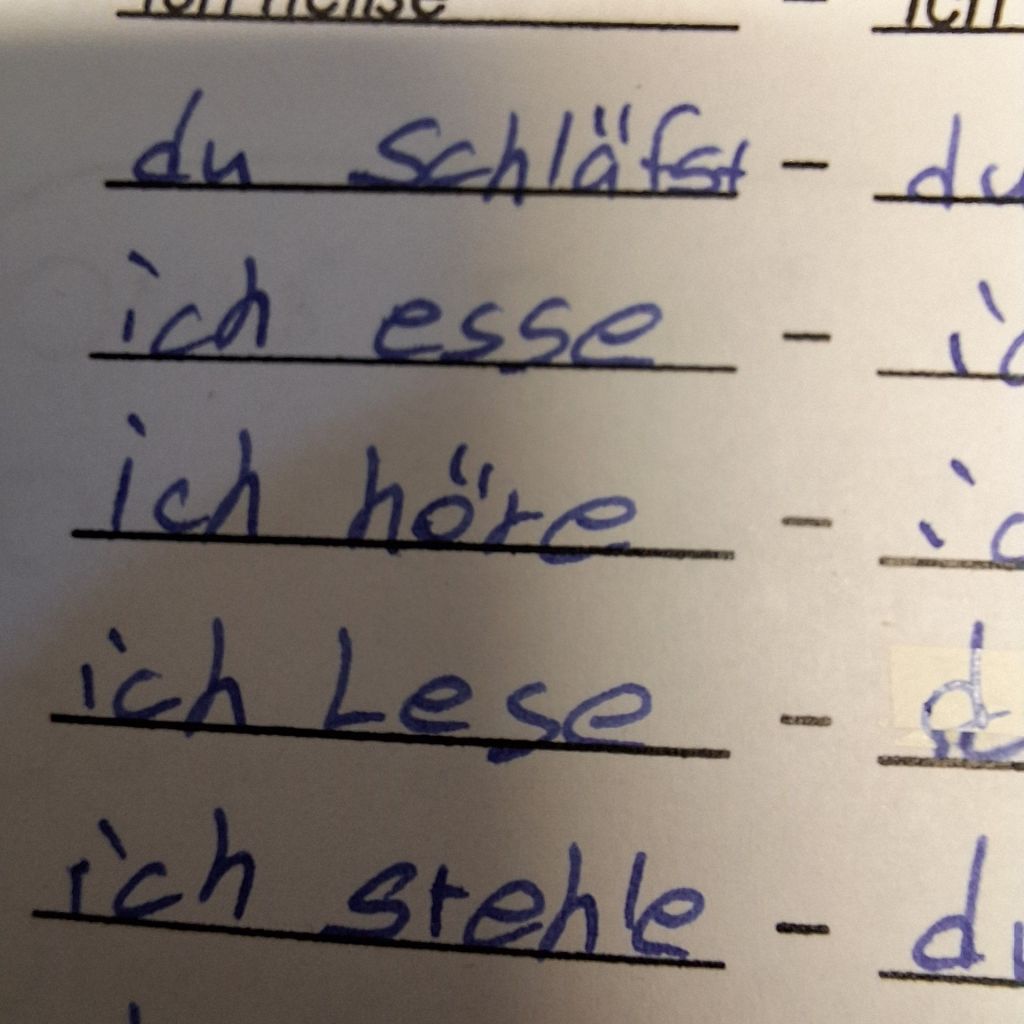 ich heiße - ich
du schläfst - du
ich esse - ic
ich höre - ic
ich Lese - d
ich stehle - du